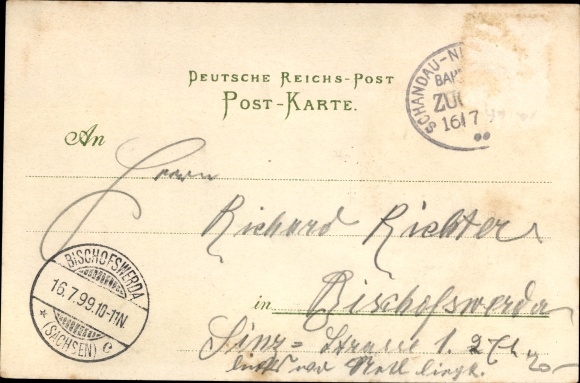 DEUTSCHE REICHS-POST
POST-KARTE.
SCHANDAU-N
BAH
ZU
16 7 9
An
Herrn
Richard Richter
in Bischofswerda
BISCHOFSWERDA
16.7.99.10-11N.
* (SACHSEN) e
Strasse 1.